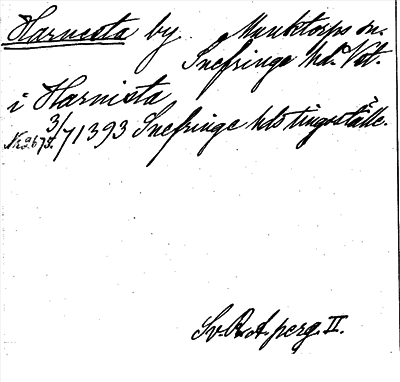 Harnesta by Munktorps sn.
Snefringe hd. Vst.
i Harnista
3/7 1393 Snefringe hds tingställe.
Sv. R. A. perg. II.